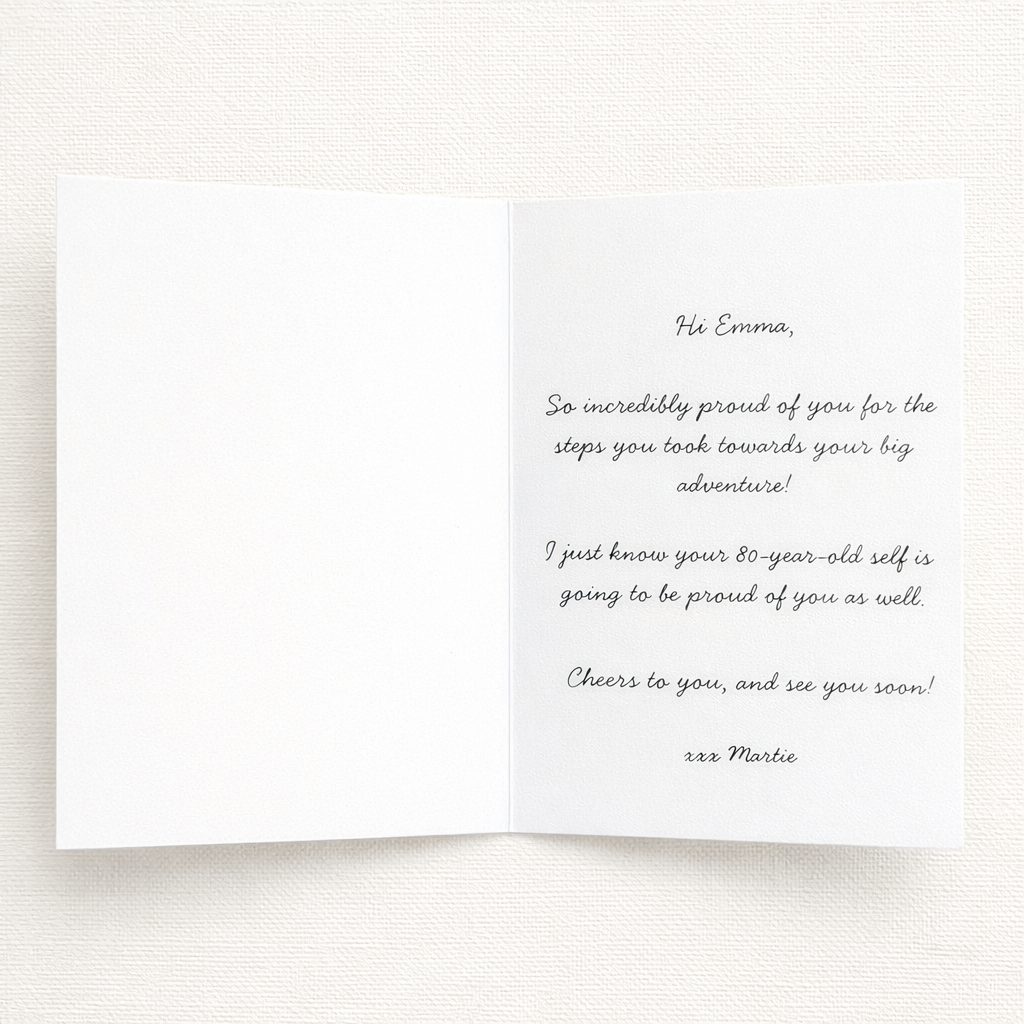 Hi Emma,
So incredibly proud of you for the
steps you took towards your big
adventure!
I just know your 80-year-old self is
going to be proud of you as well.
Cheers to you, and see you soon!
xxx Martie